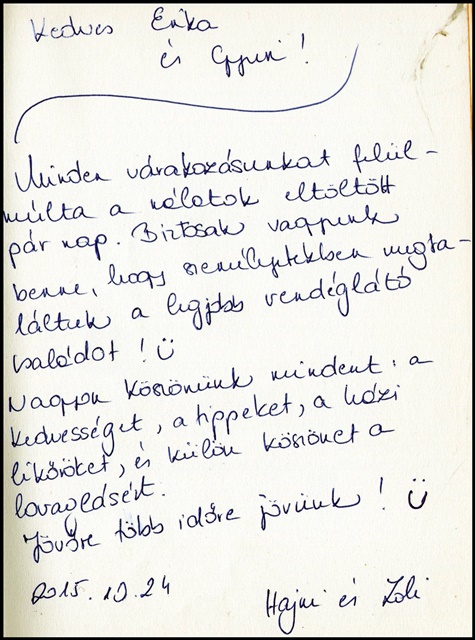 Kedves Erika
és Gyuri!
Minden várakozásunkat felül-
múlta a nálatok eltöltött
pár nap. Biztosak vagyunk
benne, hogy személyetekben megta-
láltuk a legjobb vendéglátó
családot! Ü
Nagyon köszönünk mindent: a
kedvességet, a tippeket, a házi
likőröket, és külön köszönet a
lovaglásért.
Jövőre több időre jövünk! Ü
2015.10.24
Hajni és Zoli